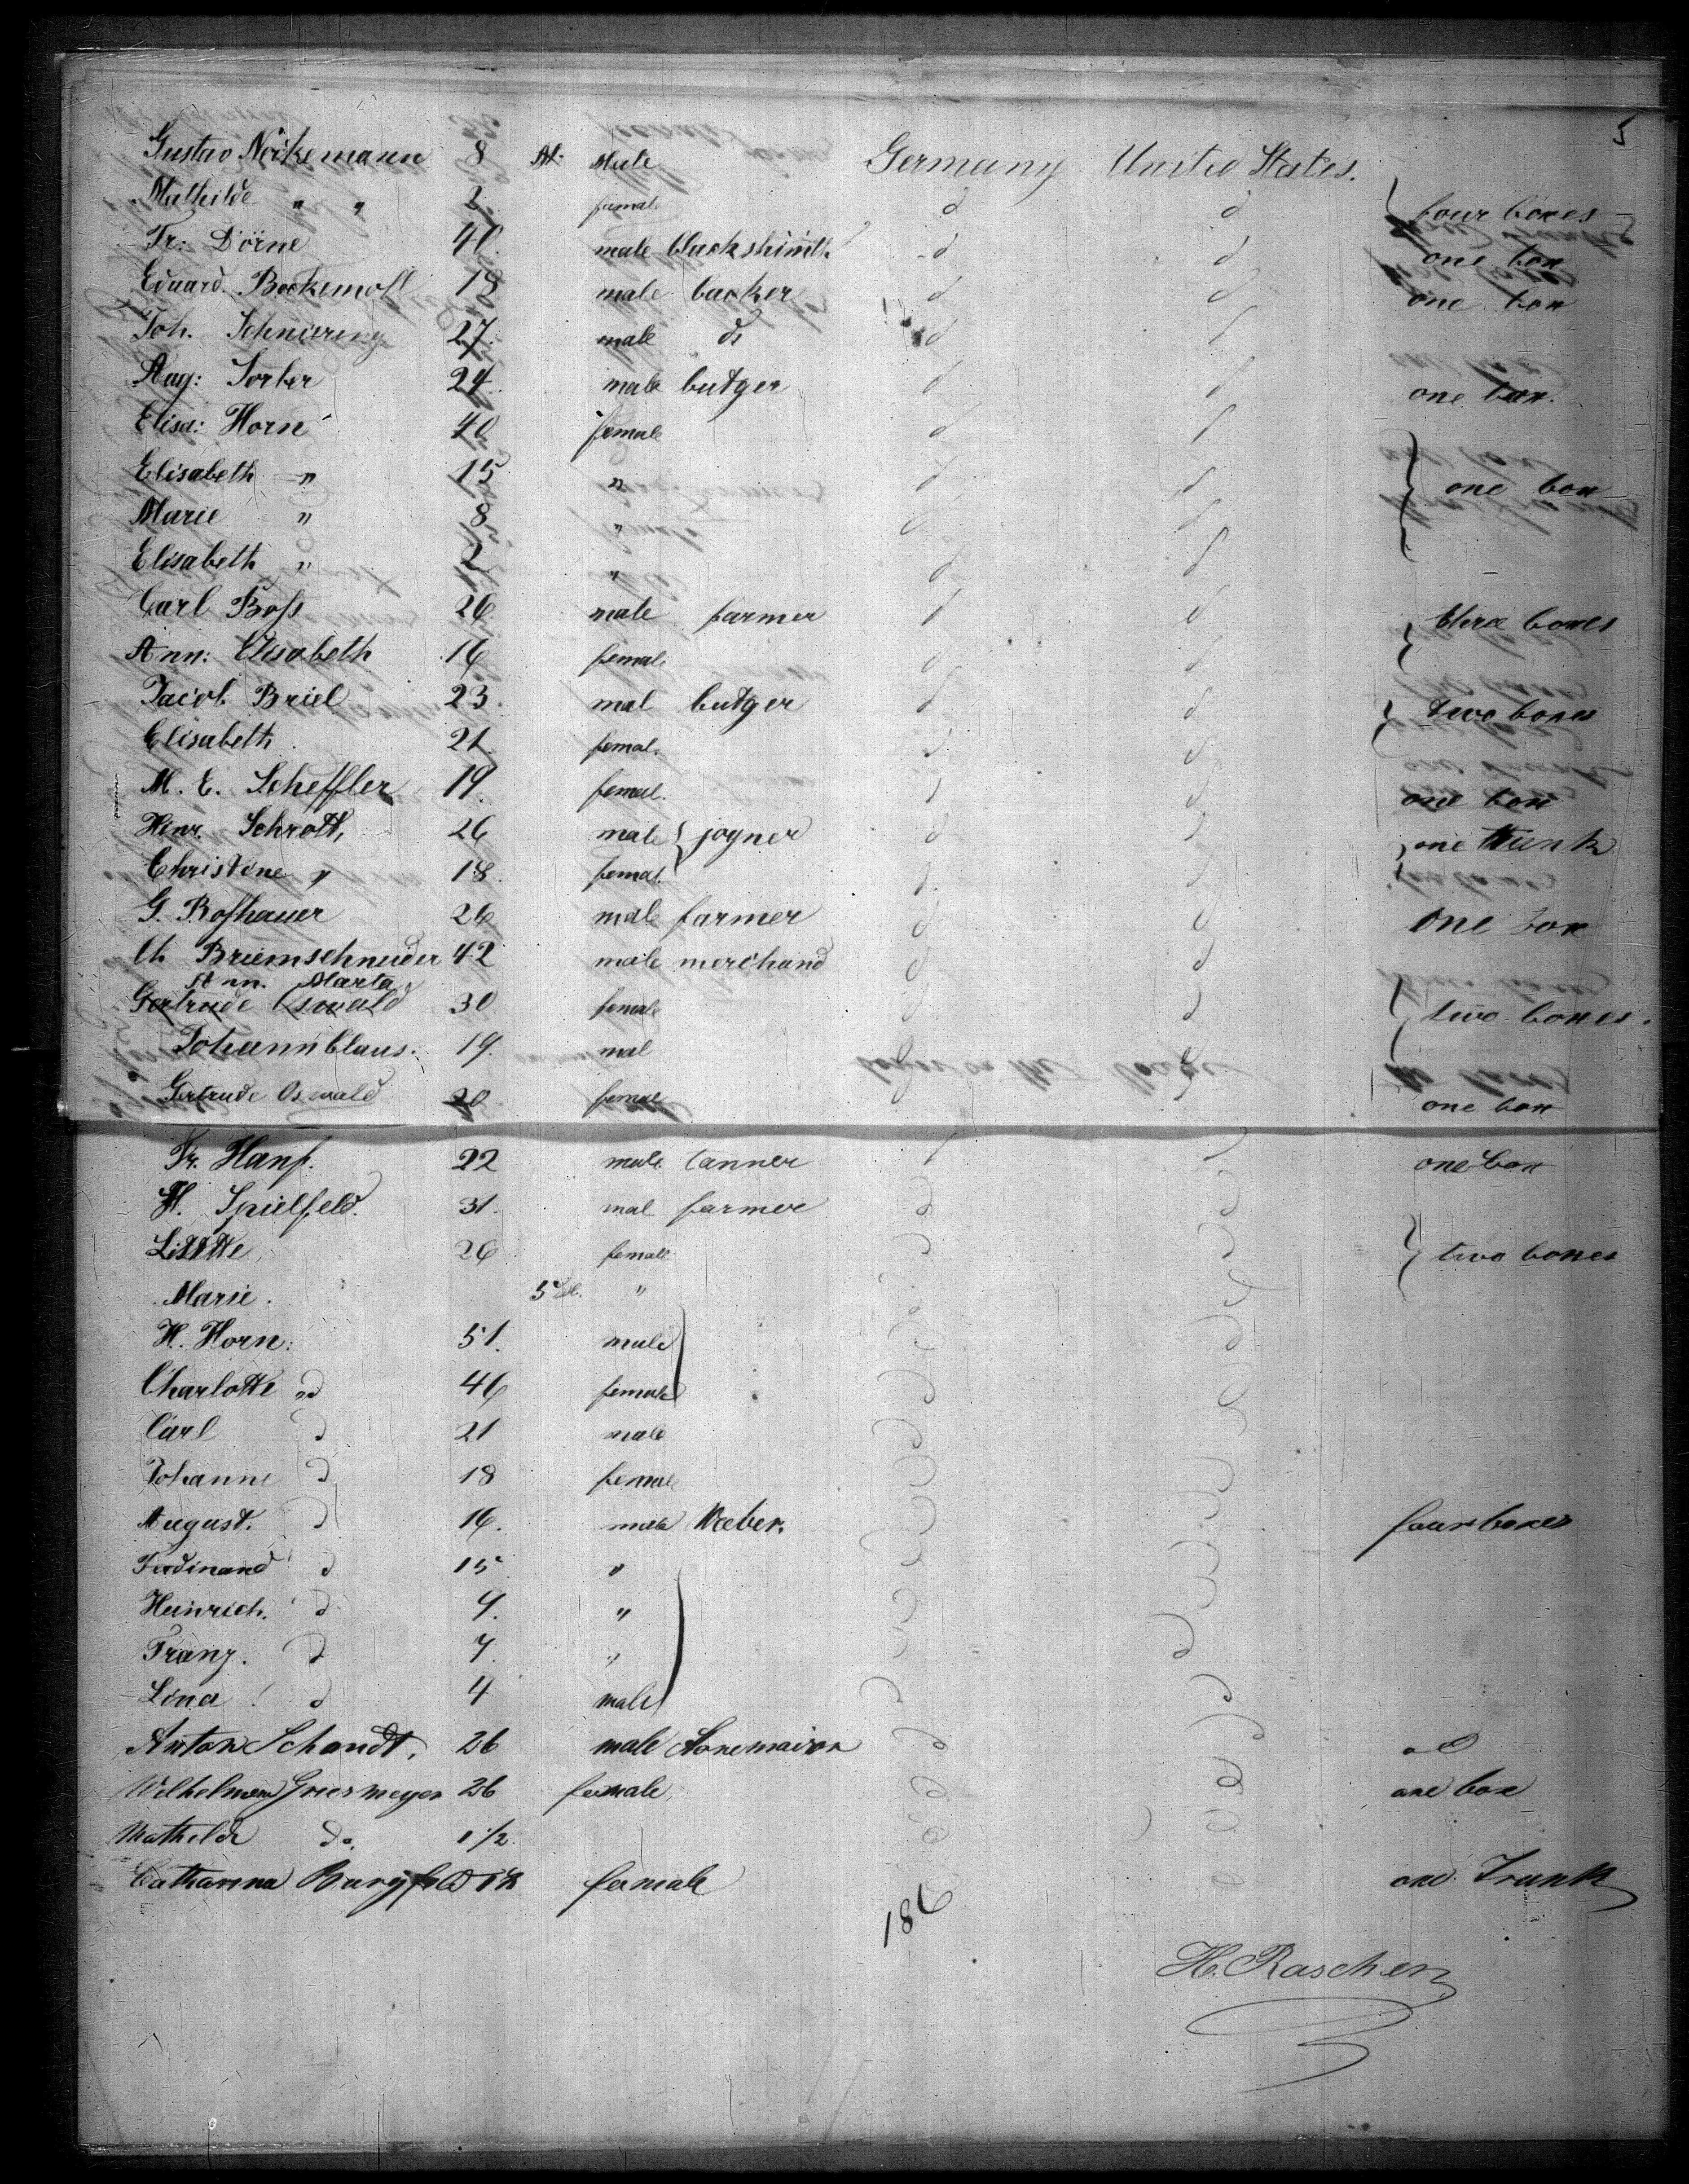 5
Gustav Nökemann 8 M: Male Germany United States.
Mathilde " " 2. femal d d four boxes
Fr: Dörne 41. male blackshimth d d one box
Eduard Bockemoll 18 male backer d d one box
Joh. Schniering 27. male do d d
Aug: Sorber 24. male butger d d one box.
Elisa: Horn 40 female d d
Elisabeth " 15 " d d one box
Marie " 8 " d d
Elisabeth " 2 " d d
Carl Boſs 26 male farmer d d three boxes
Ann: Elisabeth 16 female d d
Jacob Briel 23. mal butger d d two boxes
Elisabeth 21. femal. d d
M. E. Scheffler 19. femal. d d one box
Henr. Schrott, 26 male joyner d d one trunk
Christine " 18. femal. d d
G. Boſhauer 26 male farmer d d one box
Ch Briemschneider 42 male merchand d d
Ann. Marta
Gertrude Oswald 30 female d d two boxes.
Johann Claus. 19. mal d d
Gertrude Oswald 20 femal d d one box
Fr. Hanf. 22 male tanner d d one box
H. Spielfeld. 31. mal farmer d d
Lisette 26 female d d two boxes
Marie. 5 M. " d d
H. Horn: 51. male d d
Charlotte d 46 female d d
Carl d 21 male d d
Johanne d 18 female d d
August. d 16. male Weber. d d four boxes
Ferdinand d 15 " d d
Heinrich. d 9. " d d
Franz. d 7. " d d
Lina d 4 male d d
Anton Schandt. 26 male stonemaison d d d
Wilhelmine Griesmeyer 26 female d d one box
Mathilde do. 1 1/2 d d
Catharina Burgfeld 18 female d d one Trunk
186
H. Raschen